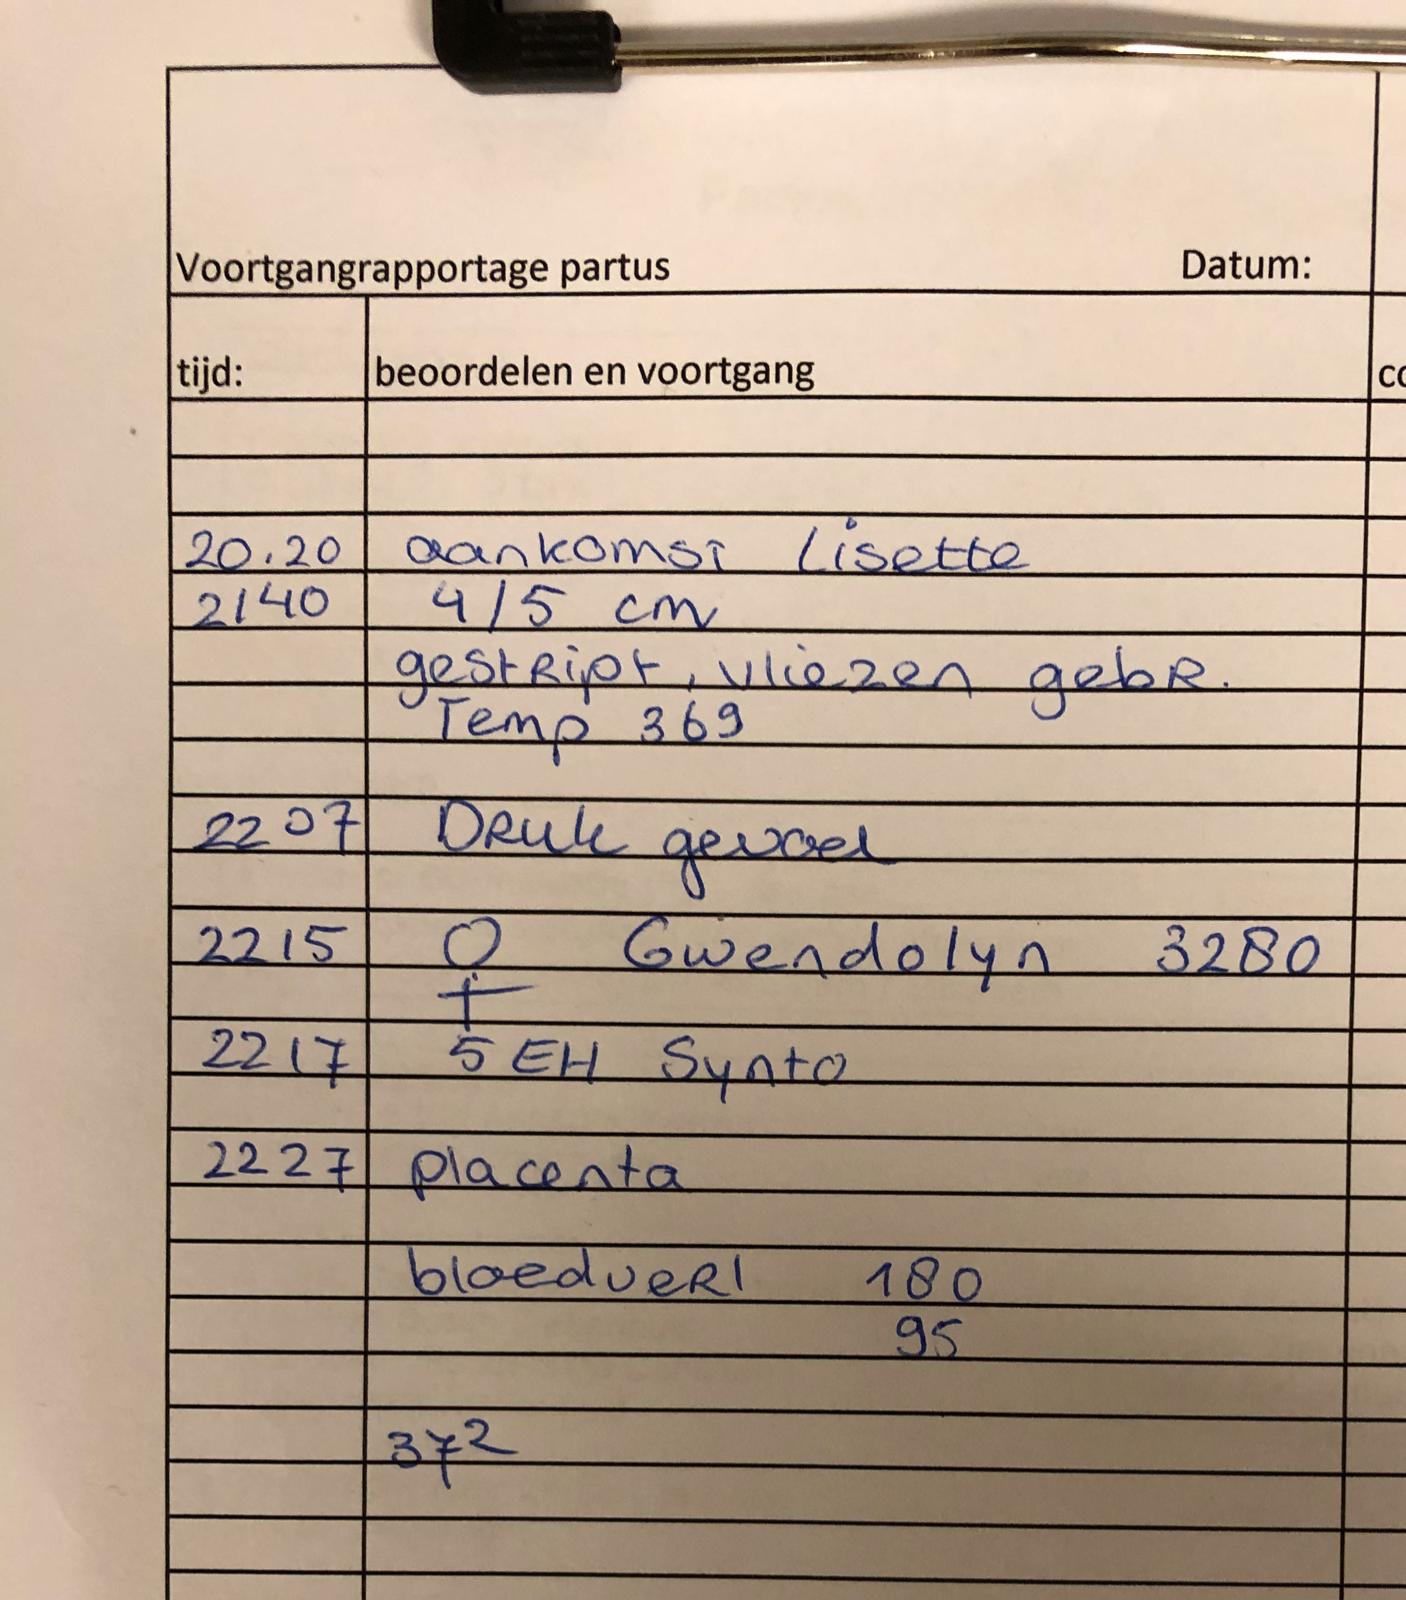 Voortgangrapportage partus Datum:
tijd: beoordelen en voortgang
20.20 aankomst Lisette
2140 4/5 cm
gestript, vliezen gebr.
Temp 369
2207 Druk gevoel
2215 ♀ Gwendolyn 3280
2217 5 EH Synto
2227 placenta
bloedverl 180
95
37²